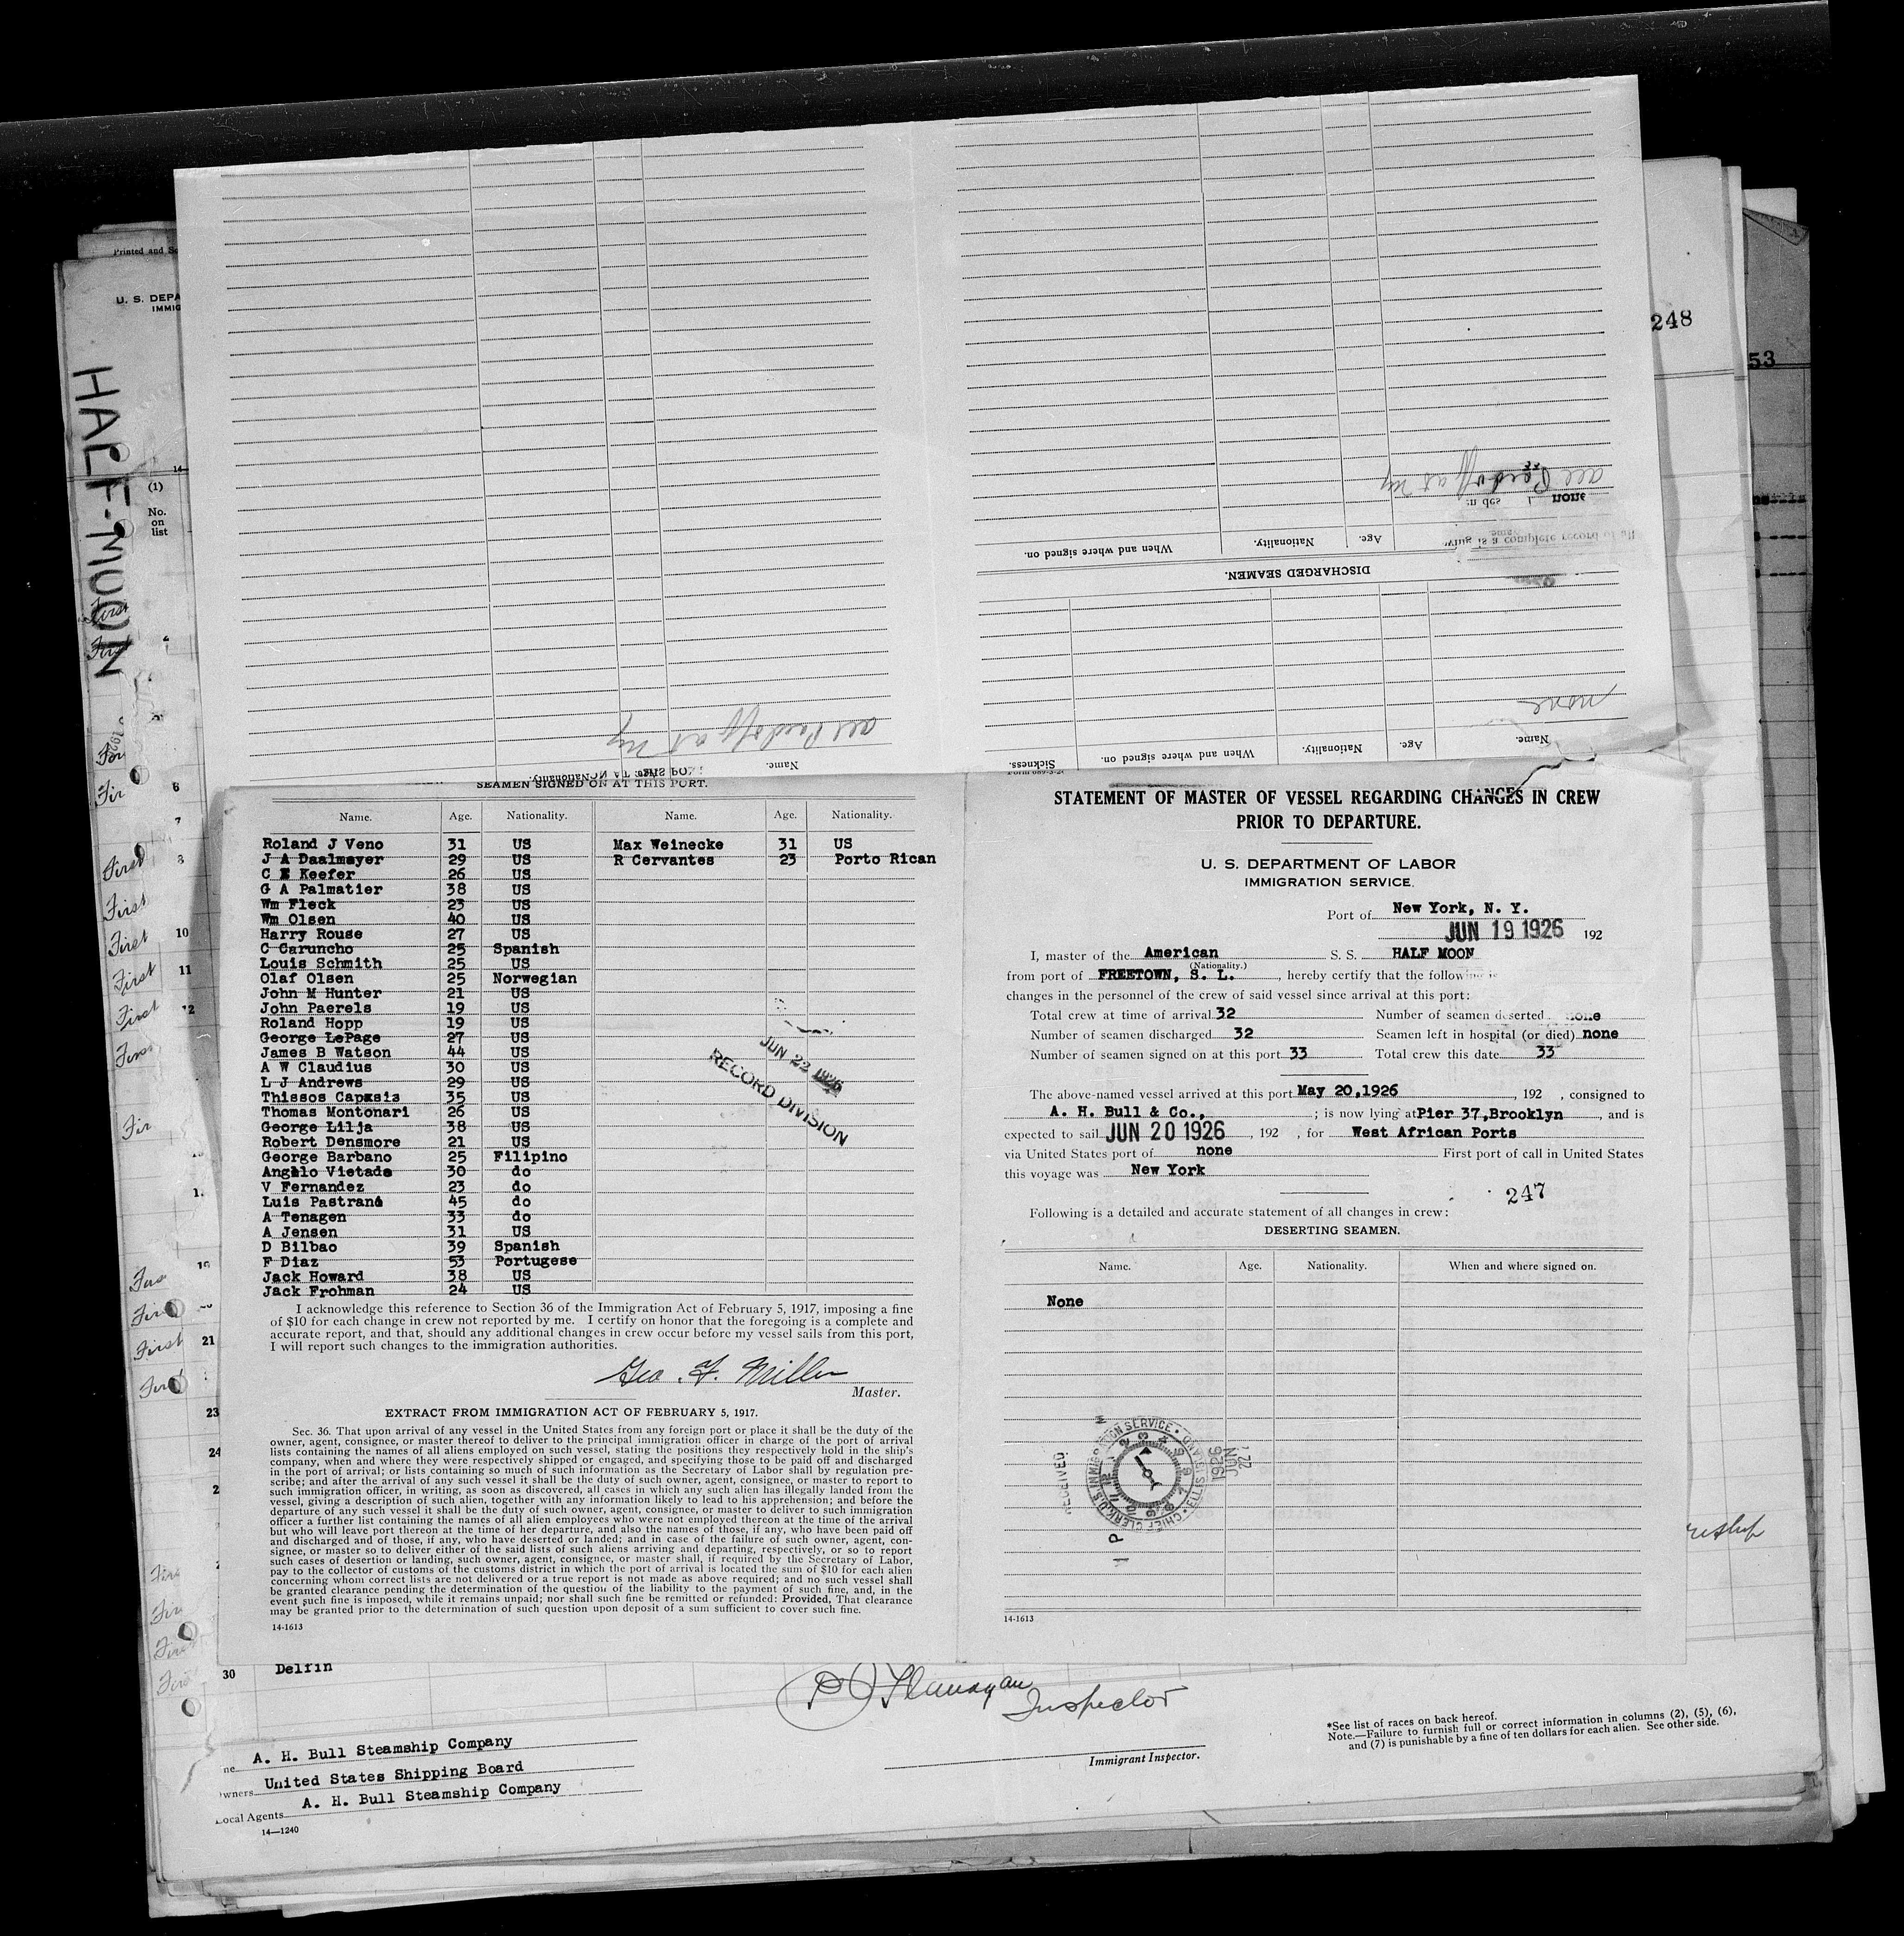 Printed and
U. S. DEPA
IMMIG
HALF-MOON
(1)
No.
on
list
248
53
all Paid off at NY
none
When and where signed on.
Nationality.
Age.
wing is a complete record of all
DISCHARGED SEAMEN.
none
Sickness.
When and where signed on.
Nationality.
Age.
Name.
all Paid off at NY
Name.
SEAMEN SIGNED ON AT THIS PORT.
Name. Age. Nationality. Name. Age. Nationality.
Roland J Veno 31 US Max Weinecke 31 US
J A Daalmeyer 29 US R Cervantes 23 Porto Rican
C E Keefer 26 US
G A Palmatier 38 US
Wm Fleck 23 US
Wm Olsen 40 US
Harry Rouse 27 US
C Caruncho 25 Spanish
Louis Schmith 25 US
Olaf Olsen 25 Norwegian
John M Hunter 21 US
John Paerels 19 US
Roland Hopp 19 US
George LePage 27 US
James B Watson 44 US
A W Claudius 30 US
L J Andrews 29 US
Thissos Capasis 35 US
Thomas Montonari 26 US
George Lilja 38 US
Robert Densmore 21 US
George Barbano 25 Filipino
Angelo Vietade 30 do
V Fernandez 23 do
Luis Pastrana 45 do
A Tenagen 33 do
A Jensen 31 US
D Bilbao 39 Spanish
F Diaz 53 Portugese
Jack Howard 38 US
Jack Frohman 24 US
JUN 22 1926
RECORD DIVISION
I acknowledge this reference to Section 36 of the Immigration Act of February 5, 1917, imposing a fine
of $10 for each change in crew not reported by me. I certify on honor that the foregoing is a complete and
accurate report, and that, should any additional changes in crew occur before my vessel sails from this port,
I will report such changes to the immigration authorities.
Geo. F. Miller
Master.
EXTRACT FROM IMMIGRATION ACT OF FEBRUARY 5, 1917.
Sec. 36. That upon arrival of any vessel in the United States from any foreign port or place it shall be the duty of the
owner, agent, consignee, or master thereof to deliver to the principal immigration officer in charge of the port of arrival
lists containing the names of all aliens employed on such vessel, stating the positions they respectively hold in the ship's
company, when and where they were respectively shipped or engaged, and specifying those to be paid off and discharged
in the port of arrival; or lists containing so much of such information as the Secretary of Labor shall by regulation pre-
scribe; and after the arrival of any such vessel it shall be the duty of such owner, agent, consignee, or master to report to
such immigration officer, in writing, as soon as discovered, all cases in which any such alien has illegally landed from the
vessel, giving a description of such alien, together with any information likely to lead to his apprehension; and before the
departure of any such vessel it shall be the duty of such owner, agent, consignee, or master to deliver to such immigration
officer a further list containing the names of all alien employees who were not employed thereon at the time of the arrival
but who will leave port thereon at the time of her departure, and also the names of those, if any, who have been paid off
and discharged and of those, if any, who have deserted or landed; and in case of the failure of such owner, agent, con-
signee, or master so to deliver either of the said lists of such aliens arriving and departing, respectively, or so to report
such cases of desertion or landing, such owner, agent, consignee, or master shall, if required by the Secretary of Labor,
pay to the collector of customs of the customs district in which the port of arrival is located the sum of $10 for each alien
concerning whom correct lists are not delivered or a true report is not made as above required; and no such vessel shall
be granted clearance pending the determination of the question of the liability to the payment of such fine, and, in the
event such fine is imposed, while it remains unpaid; nor shall such fine be remitted or refunded: Provided, That clearance
may be granted prior to the determination of such question upon deposit of a sum sufficient to cover such fine.
14-1613
STATEMENT OF MASTER OF VESSEL REGARDING CHANGES IN CREW
PRIOR TO DEPARTURE.
U. S. DEPARTMENT OF LABOR
IMMIGRATION SERVICE.
Port of New York, N. Y.
JUN 19 1926 192
I, master of the American S. S. HALF MOON
(Nationality.)
from port of FREETOWN, S. L. , hereby certify that the following is
changes in the personnel of the crew of said vessel since arrival at this port:
Total crew at time of arrival 32 Number of seamen deserted none
Number of seamen discharged 32 Seamen left in hospital (or died) none
Number of seamen signed on at this port 33 Total crew this date 33
The above-named vessel arrived at this port May 20,1926 , 192 , consigned to
A. H. Bull & Co., ; is now lying at Pier 37,Brooklyn , and is
expected to sail JUN 20 1926 , 192 , for West African Ports
via United States port of none First port of call in United States
this voyage was New York
247
Following is a detailed and accurate statement of all changes in crew:
DESERTING SEAMEN.
Name. Age. Nationality. When and where signed on.
None
RECEIVED
CHIEF CLERK, U.S. IMMIGRATION SERVICE • ELLIS ISLAND
1926 JUN 22
14-1613
First
First
First
First
First
First
First
First
6
7
8
10
11
12
19
21
23
24
30 Delfin
P J Flanagan
Inspector
Immigrant Inspector.
A. H. Bull Steamship Company
wners United States Shipping Board
Local Agents A. H. Bull Steamship Company
14—1240
*See list of races on back hereof.
Note.—Failure to furnish full or correct information in columns (2), (5), (6),
and (7) is punishable by a fine of ten dollars for each alien. See other side.